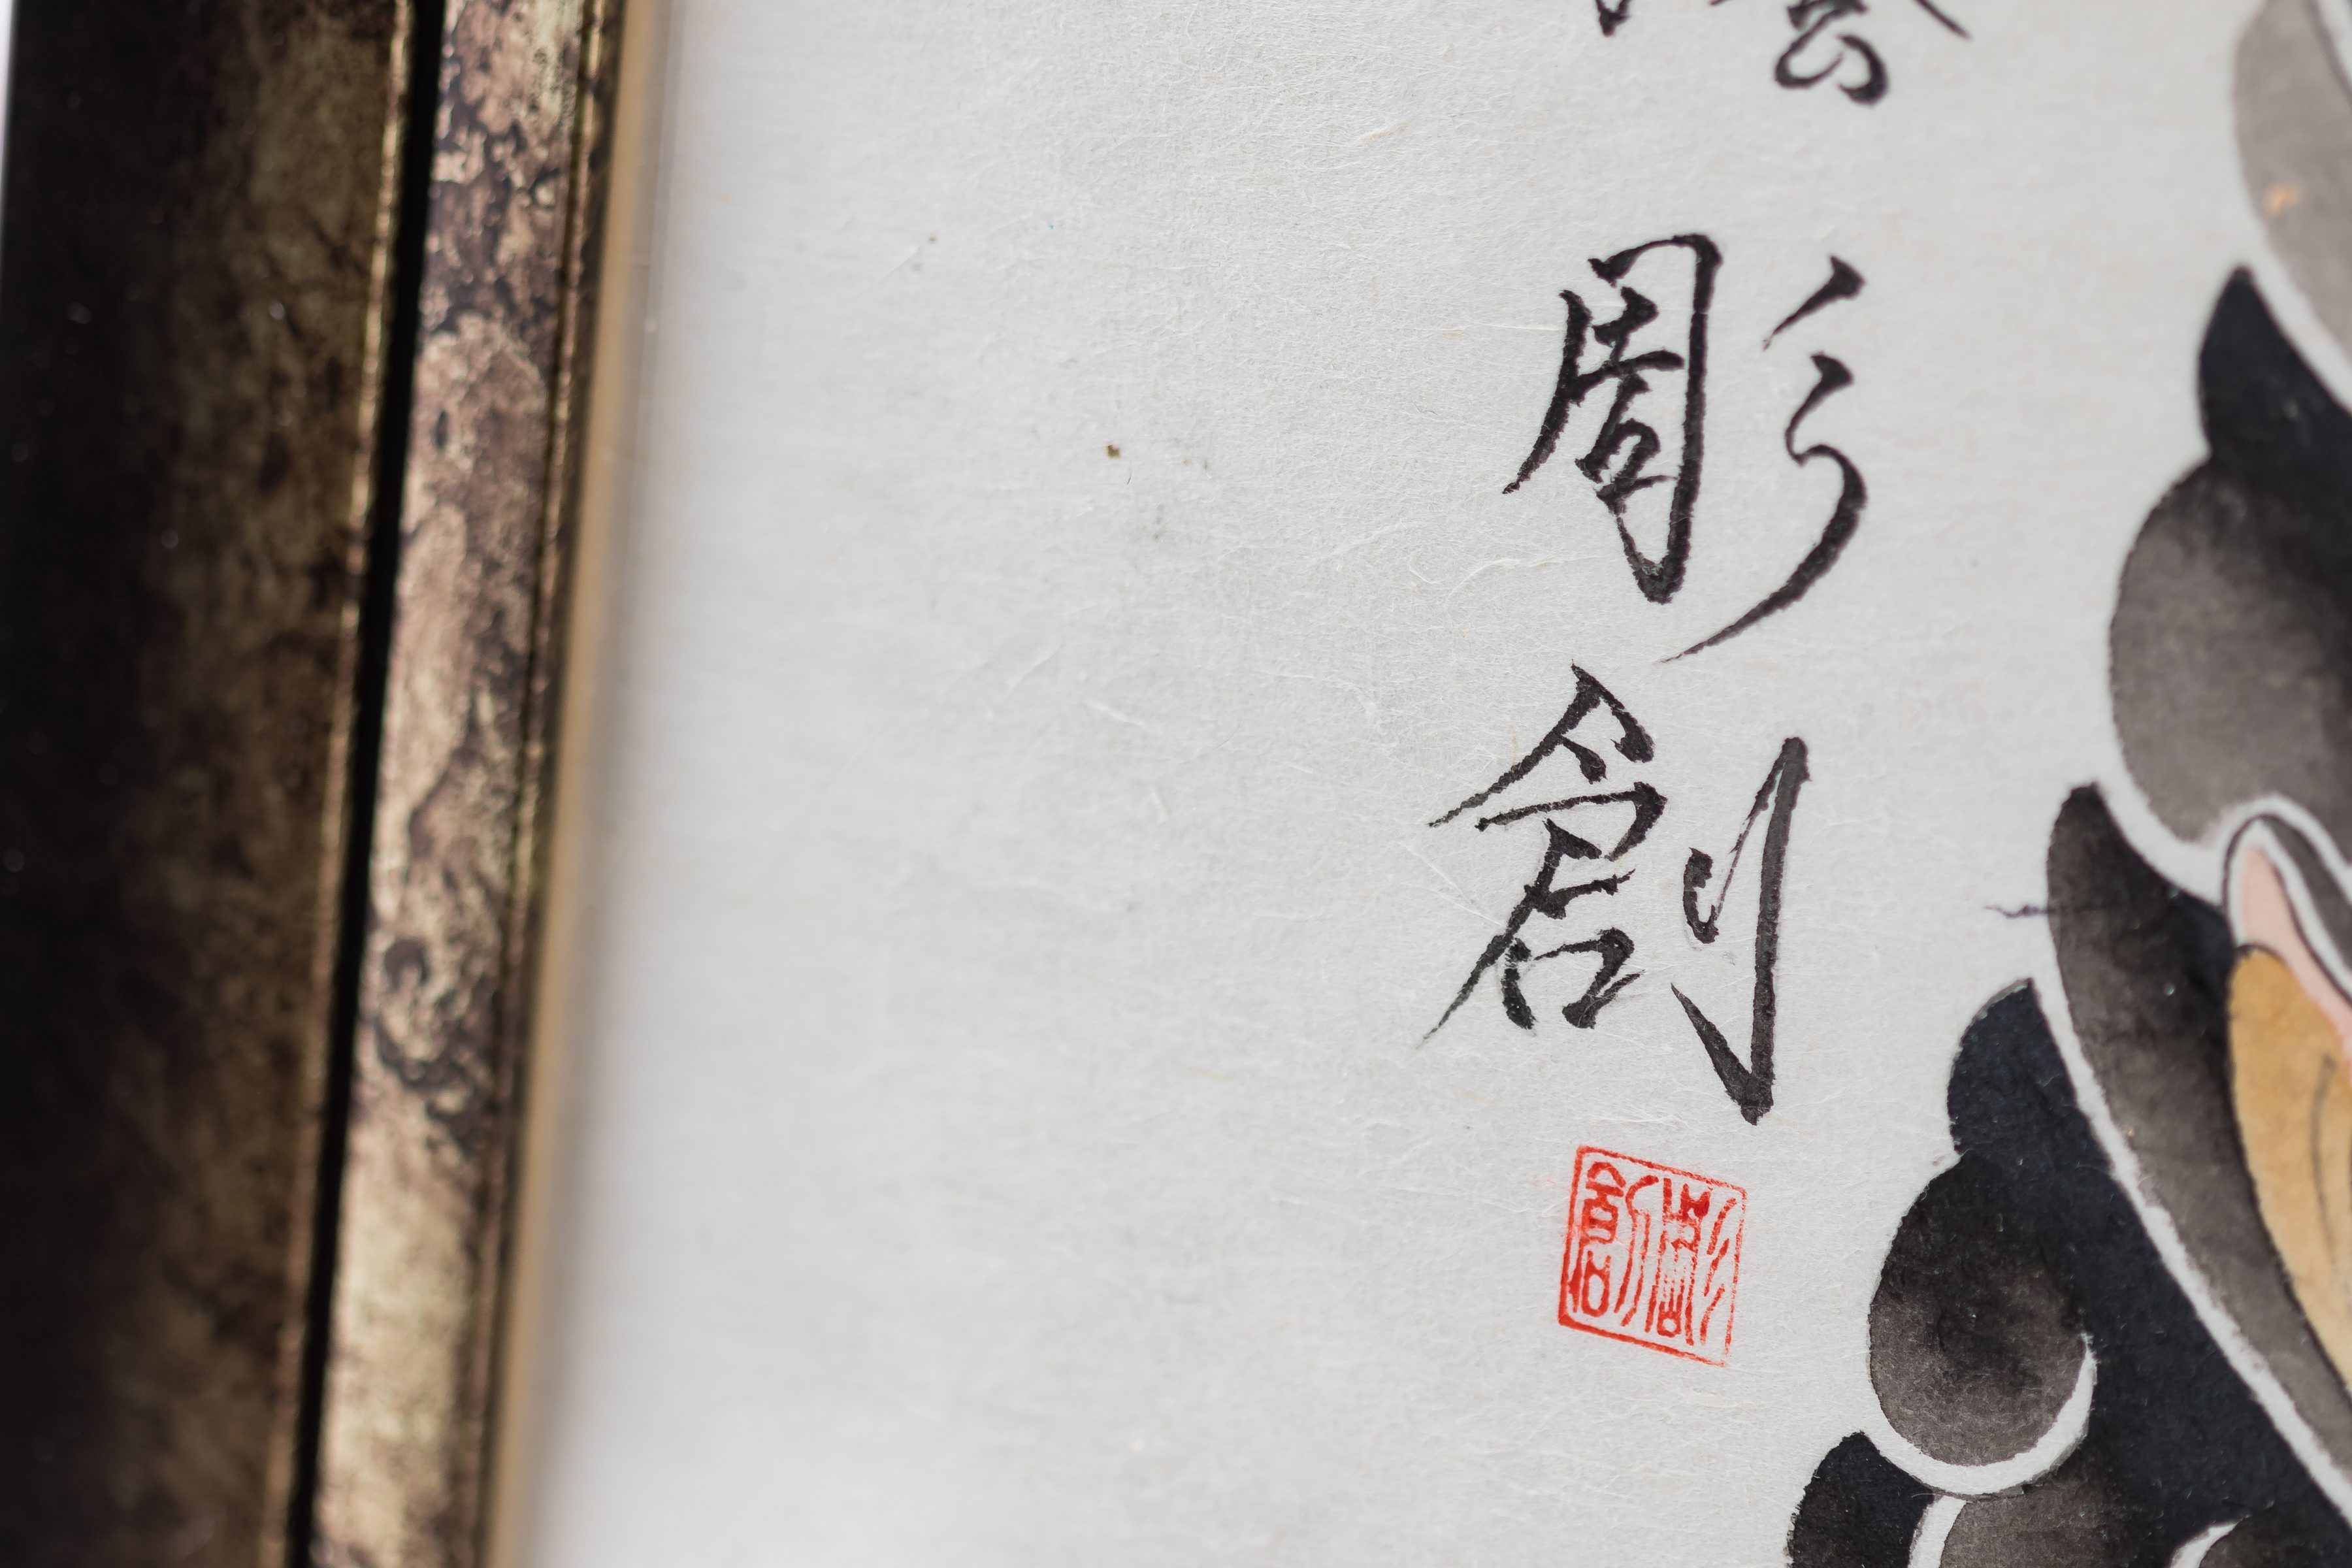 繪
彫創
彫創